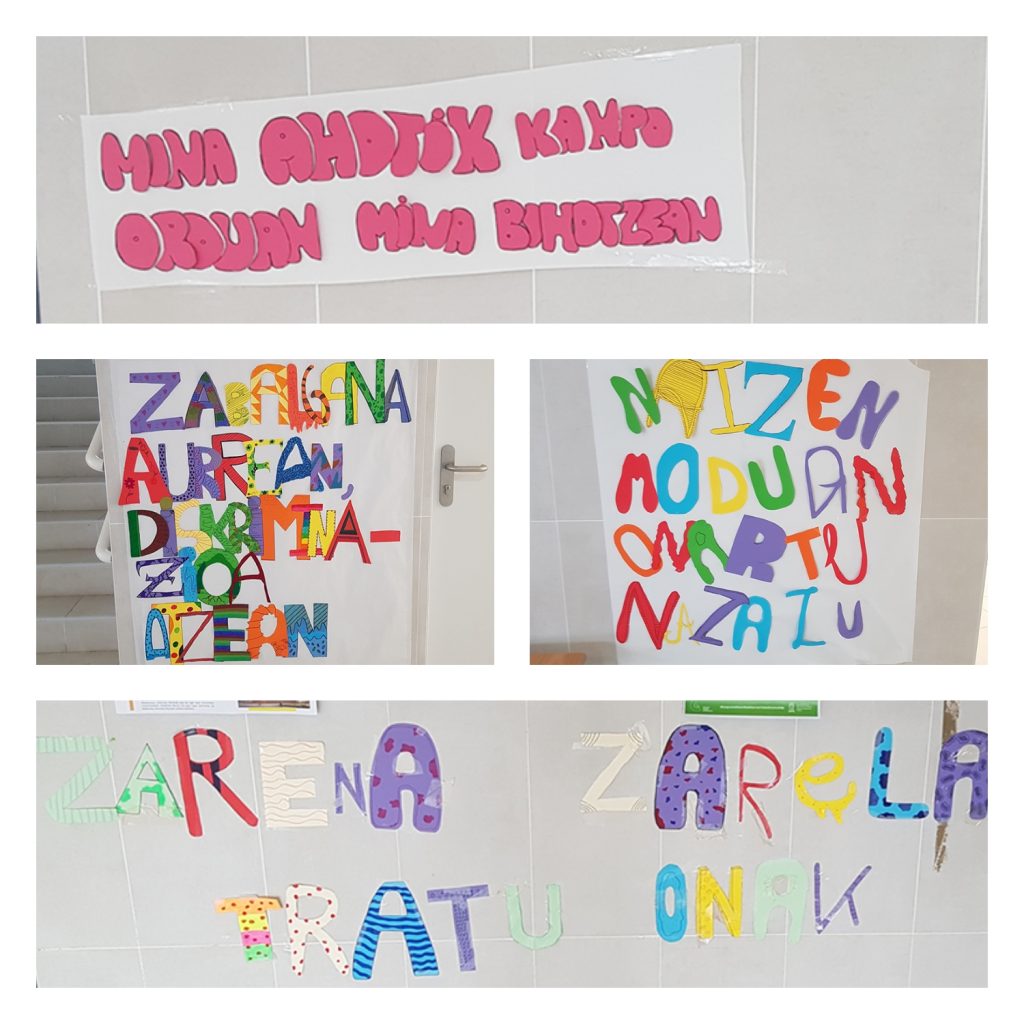 MINA AHOTIK KANPO
ORDUAN MINA BIHOTZEAN
ZABALGANA
AURREAN,
DISKRIMINA-
ZIOA
ATZEAN
NAIZEN
MODUAN
ONARTU
NAZAZU
ZARENA ZARELA
TRATU ONAK